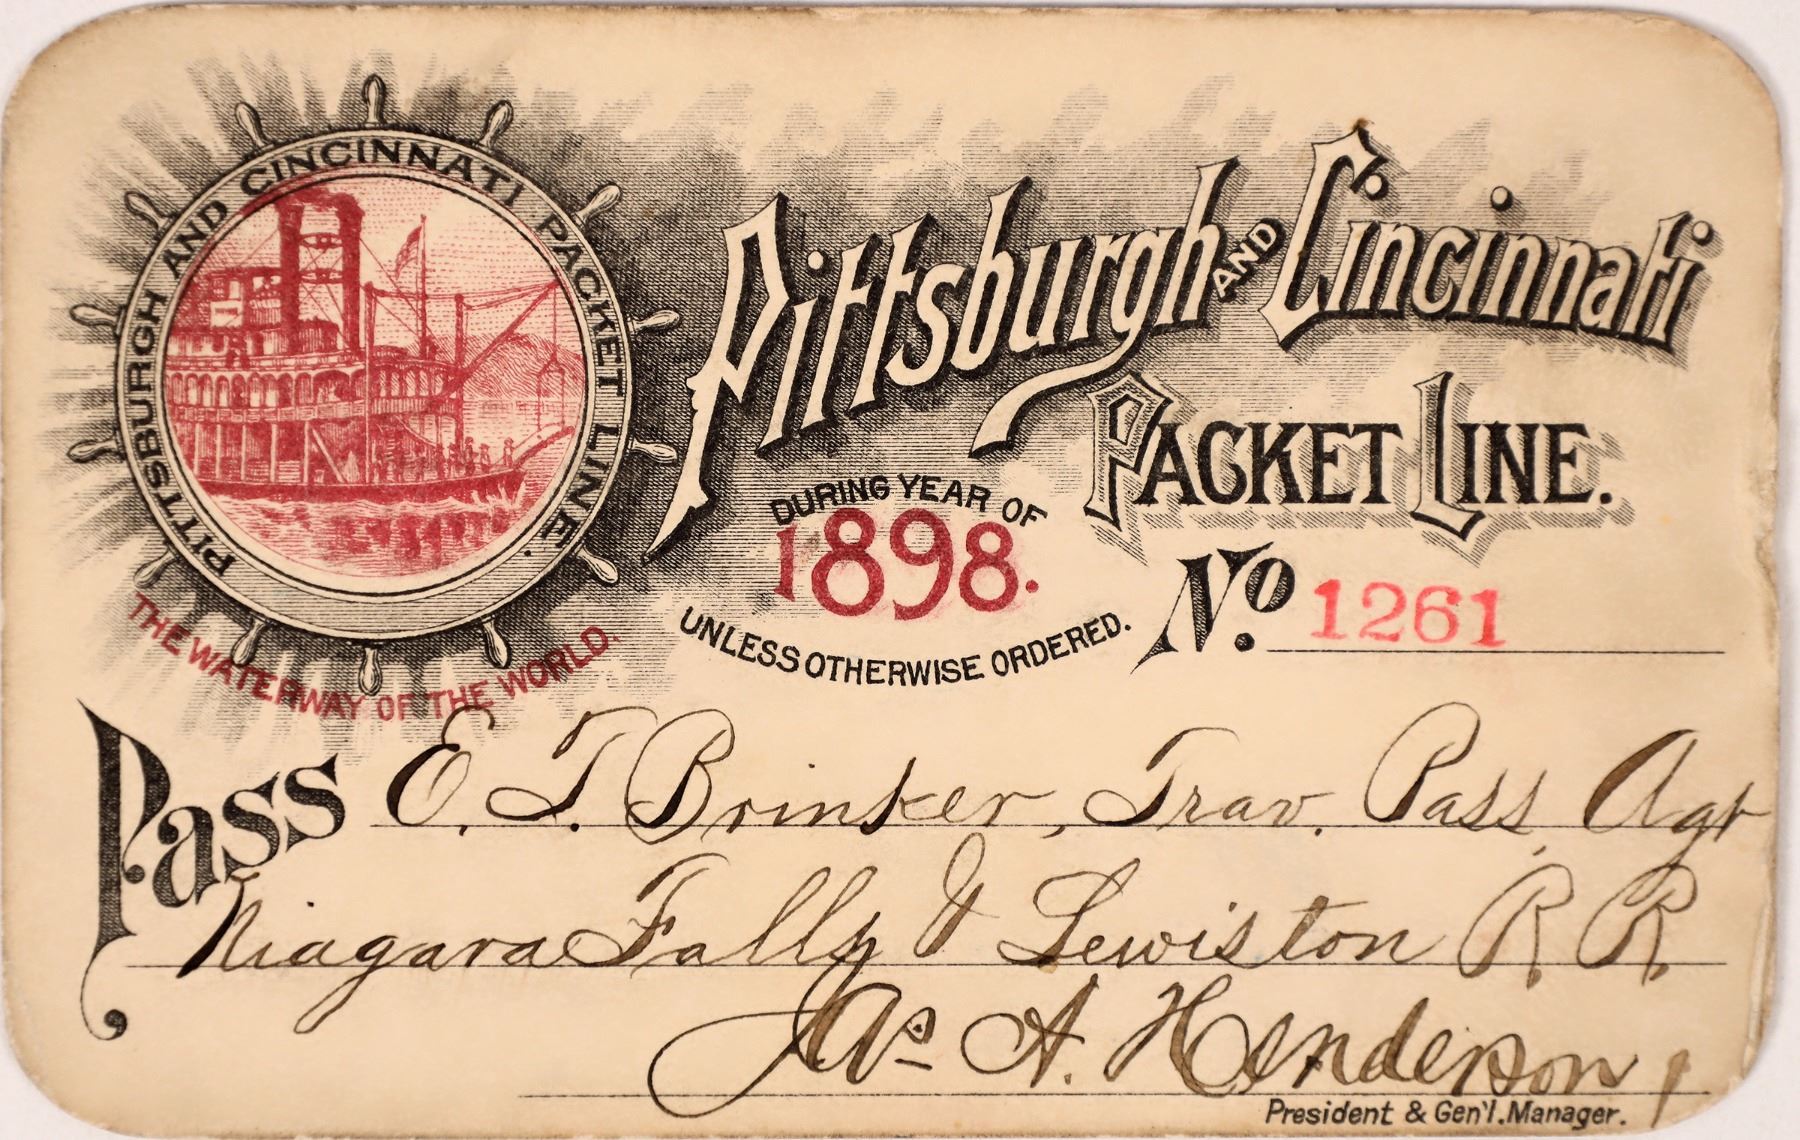 PITTSBURGH AND CINCINNATI PACKET LINE.
THE WATERWAY OF THE WORLD.
Pittsburgh AND Cincinnati
PACKET LINE.
DURING YEAR OF
1898.
UNLESS OTHERWISE ORDERED.
No. 1261
Pass E. T. Brinker, Trav. Pass. Agt
Niagara Falls & Lewiston R. R.
Jas A. Henderson
President & Gen'l. Manager.